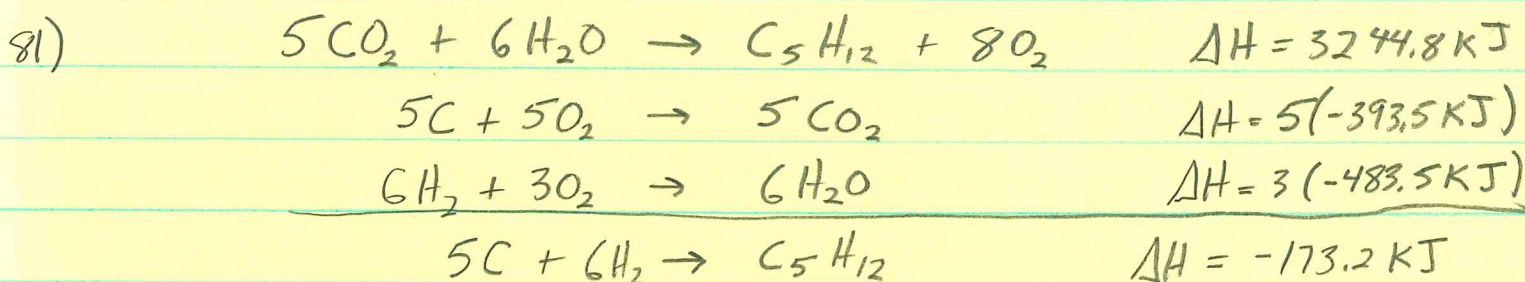 81) 5CO₂ + 6H₂O → C₅H₁₂ + 8O₂ ΔH = 3244.8 KJ
5C + 5O₂ → 5CO₂ ΔH = 5(-393.5 KJ)
6H₂ + 3O₂ → 6H₂O ΔH = 3(-483.5 KJ)
5C + 6H₂ → C₅H₁₂ ΔH = -173.2 KJ